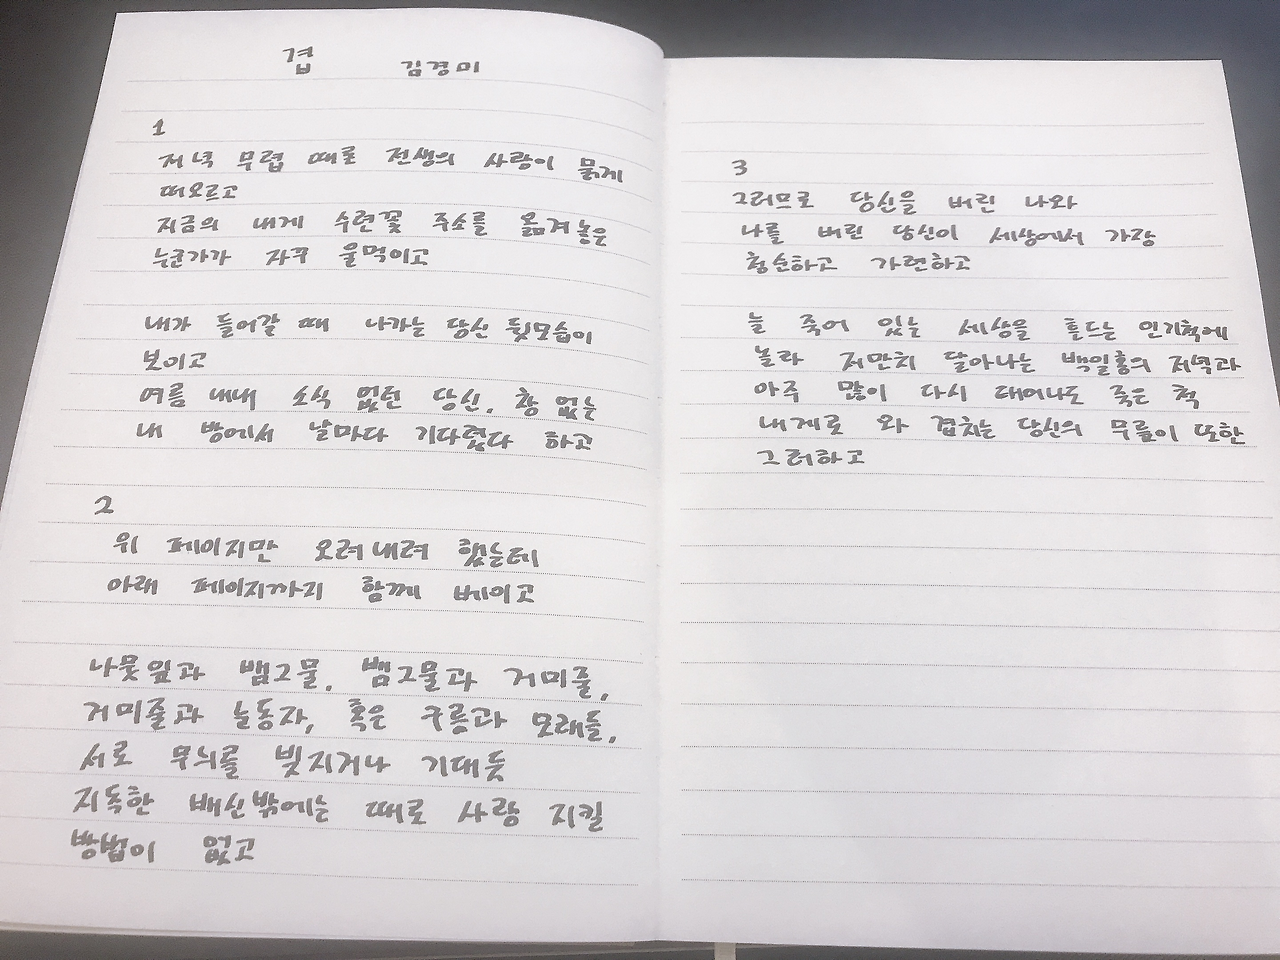 겹 김경미
1
저녁 무렵 때로 전생의 사랑이 묽게
떠오르고
지금의 내게 수련꽃 주소를 옮겨놓은
누군가가 자꾸 울먹이고
내가 들어갈 때 나가는 당신 뒷모습이
보이고
여름 내내 소식 없던 당신, 창 없는
내 방에서 날마다 기다렸다 하고
2
위 페이지만 오려내려 했는데
아래 페이지까지 함께 베이고
나뭇잎과 뱀그물, 뱀그물과 거미줄,
거미줄과 눈동자, 혹은 구름과 모래들,
서로 무늬를 빚지거나 기대듯
지독한 배신밖에는 때로 사랑 지킬
방법이 없고
3
그러므로 당신을 버린 나와
나를 버린 당신이 세상에서 가장
청순하고 가련하고
늘 죽어 있는 세상을 흔드는 인기척에
놀라 저만치 달아나는 백일홍의 저녁과
아주 많이 다시 태어나도 죽은 척
내게로 와 겹치는 당신의 무릎이 또한
그러하고